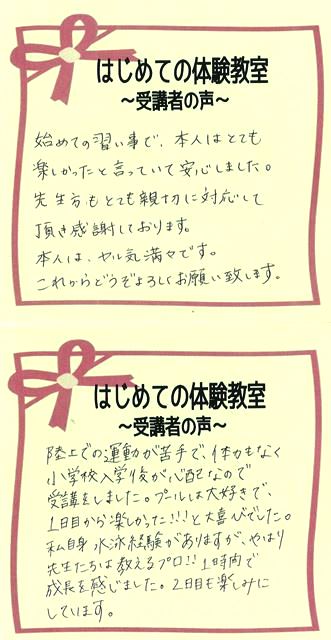 はじめての体験教室
～受講者の声～
始めての習い事で、本人はとても
楽しかったと言っていて安心しました。
先生方もとても親切に対応して
頂き感謝しております。
本人は、ヤル気満々です。
これからどうぞよろしくお願い致します。
はじめての体験教室
～受講者の声～
陸上での運動が苦手で、体力もなく
小学校入学後が心配なので
受講をしました。プールは大好きで、
1日目から楽しかった!!!と大喜びでした。
私自身水泳経験がありますが、やはり
先生たちは教えるプロ!!1時間で
成長を感じました。2日目も楽しみに
しています。